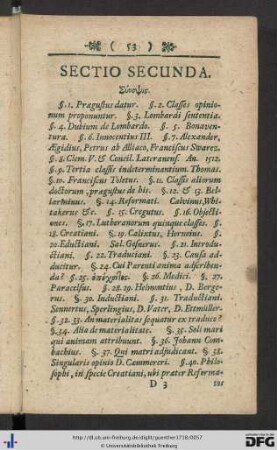 ( 53 )
SECTIO SECUNDA.
Σύνοψις.
§. 1. Pragustus datur. §. 2. Classes opinio-
num proponuntur. §. 3. Lombardi sententia.
§. 4. Dubium de Lombardo. §. 5. Bonaven-
tura. §. 6. Innocentius III. §. 7. Alexander,
Ægidius, Petrus ab Alliaco, Franciscus Swarez.
§. 8. Clem. V. & Concil. Lateranens. An. 1512.
§. 9. Tertia classis indeterminantium. Thomas.
§. 10. Franciscus Toletus. §. 11. Classis aliorum
doctorum, pragustus de his. §. 12. & 13. Bel-
larminus. §. 14. Reformati. Calvinus, Whi-
takerus &c. §. 15. Cregutus. §. 16. Objecti-
ones. §. 17. Lutheranorum quinque classes. §.
18. Creatiani. §. 19. Calixtus, Horneius. §.
20. Eductiani. Sal. Gesnerus. §. 21. Introdu-
ctiani. §. 22. Traduciani. §. 23. Causa ad-
ducitur. §. 24. Cui Parenti anima adscriben-
da? §. 25. §. 26. Medici. §. 27.
Paracelsus. §. 28. 29. Helmontius, D. Berge-
rus. §. 30. Inductiani. §. 31. Traductiani.
Sennertus, Sperlingius, D. Vater, D. Etmüller.
§. 32. 33. An materialitas sequatur ex traduce?
§. 34. Alia de materialitate. §. 35. Soli mari
qui animam attribuunt. §. 36. Johann Com-
bachius. §. 37. Qui matri adjudicant. §. 38.
Singularis opinio D. Cammereri. §. 40. Philo-
sophi, in specie Creatiani, uti prater Reforma-
D 3
tos
http://dl.ub.uni-freiburg.de/diglit/guenther1718/0057
© Universitätsbibliothek Freiburg